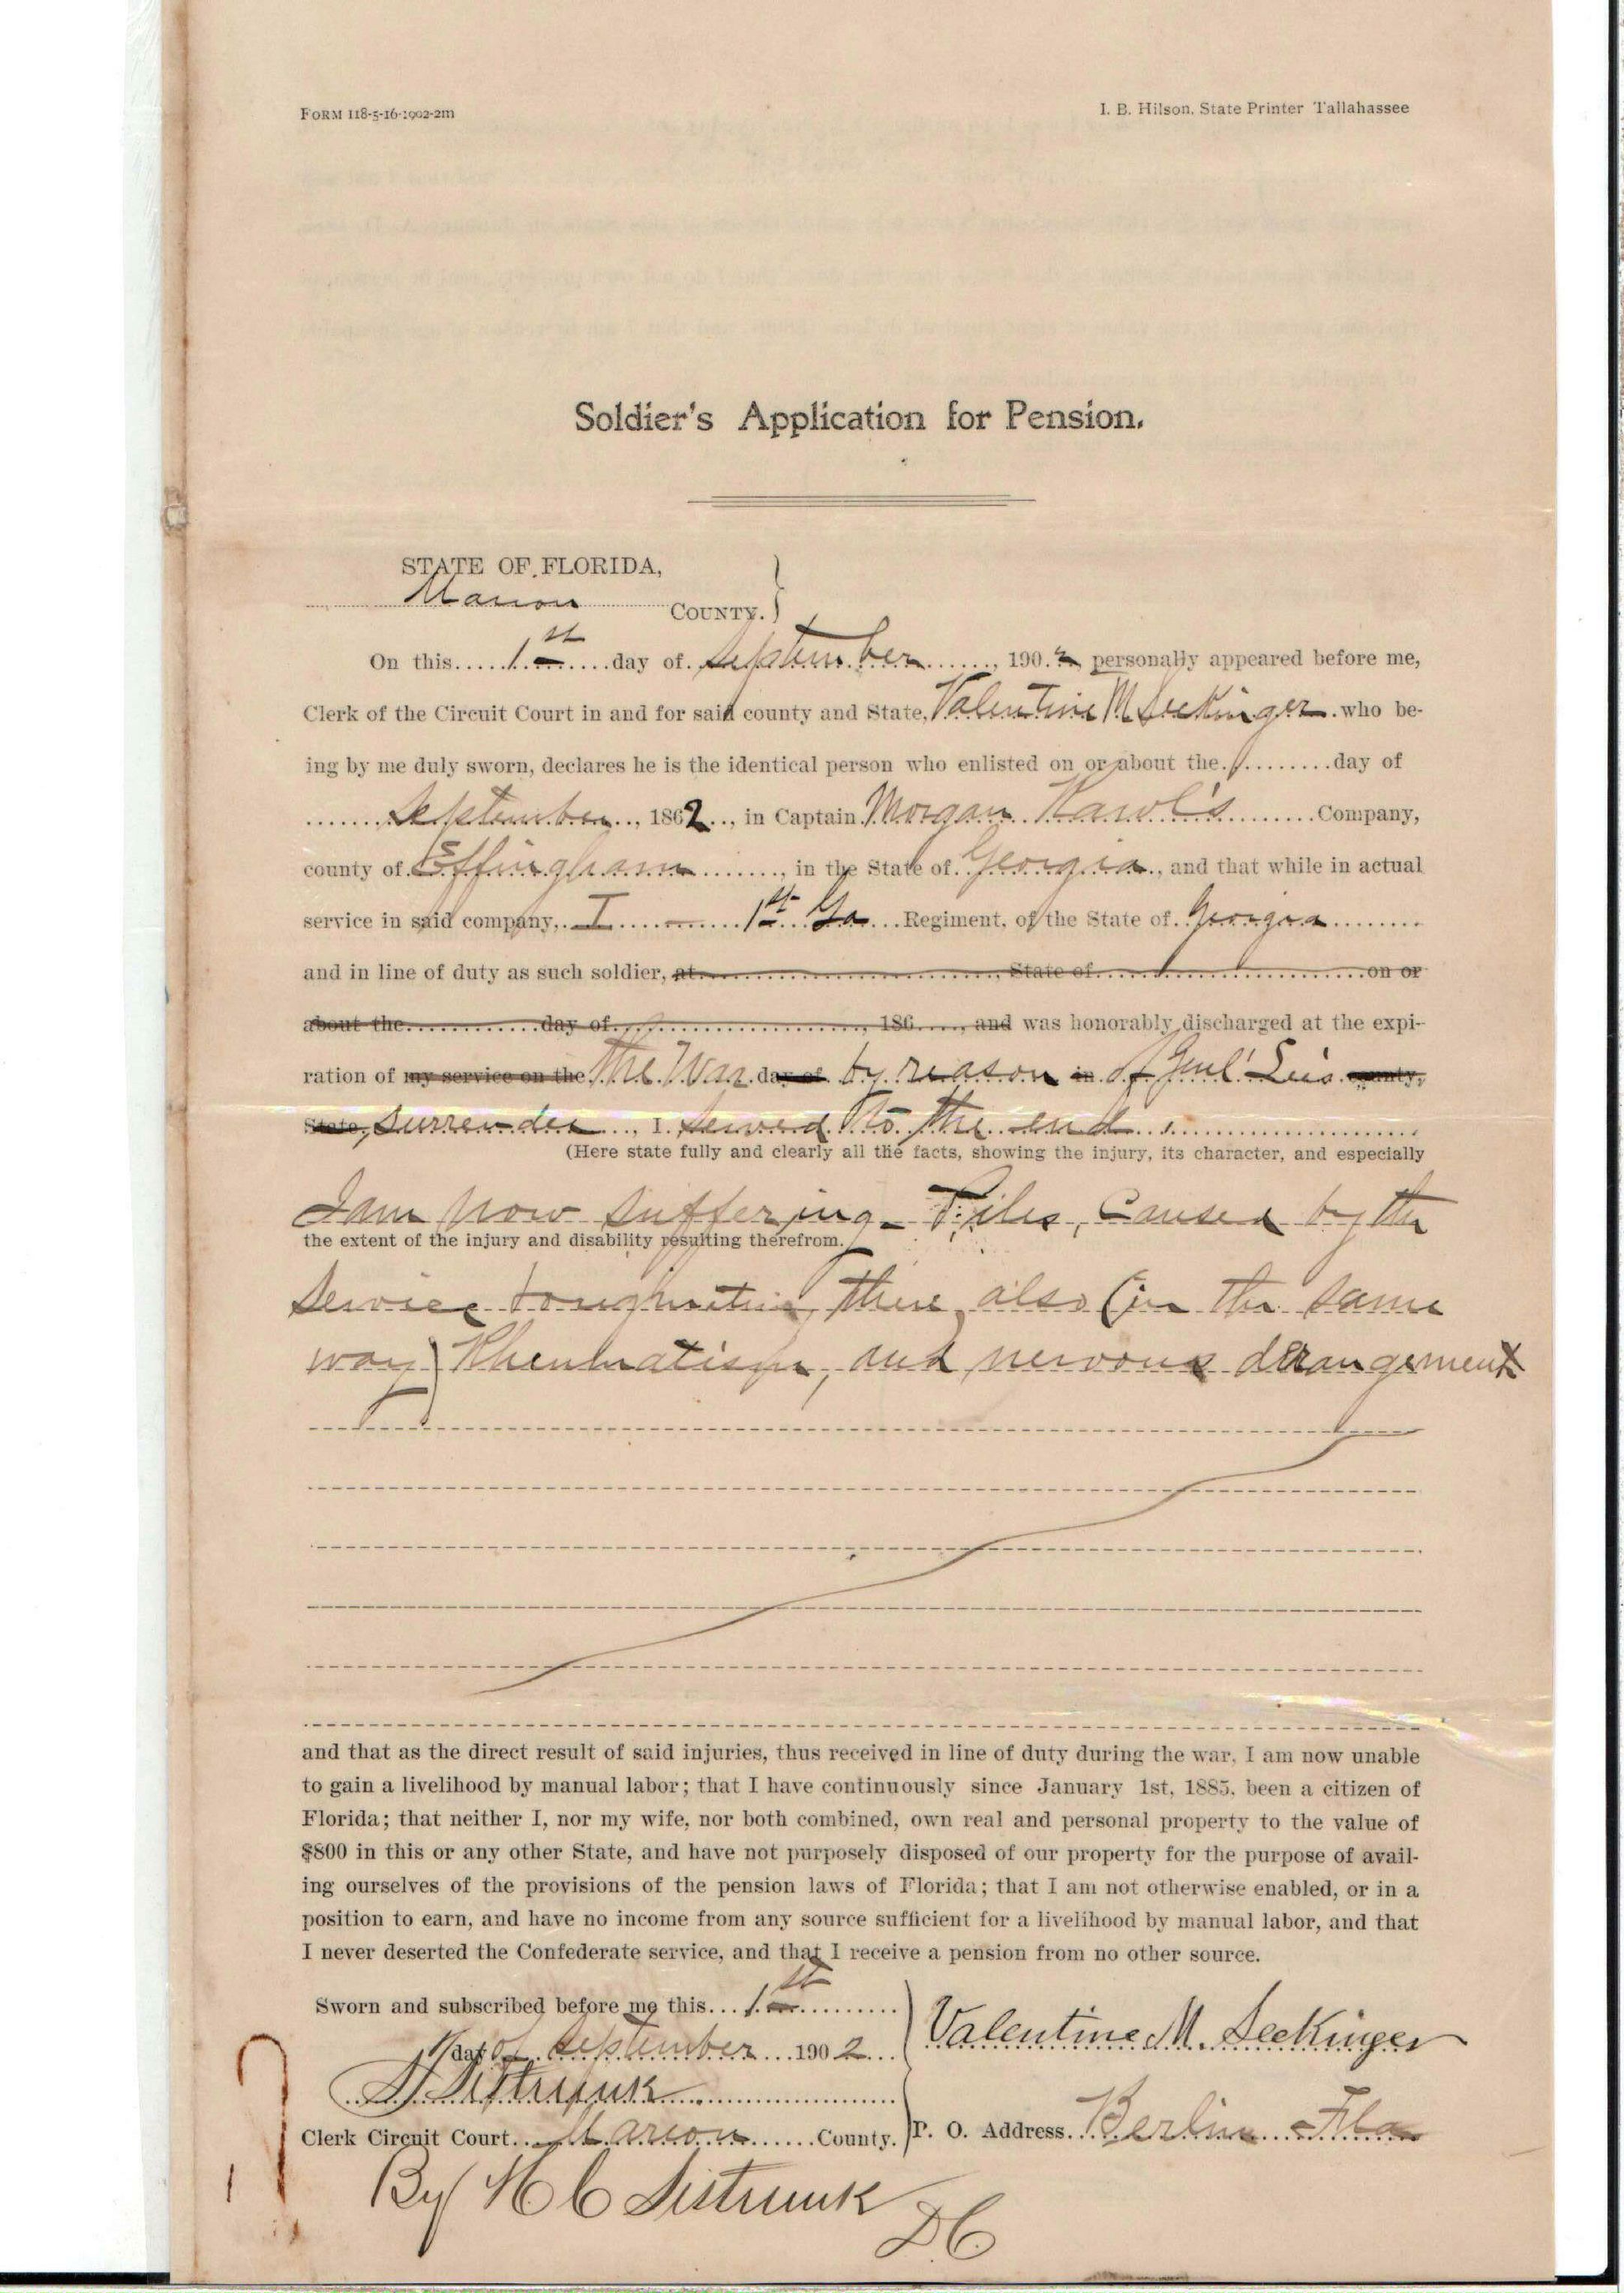 FORM 118-5-16-1902-2m
I. B. Hilson, State Printer Tallahassee
Soldier's Application for Pension.
STATE OF FLORIDA,
Marion COUNTY.
On this 1st day of September, 1902 personally appeared before me,
Clerk of the Circuit Court in and for said county and State, Valentine M Seckinger who be-
ing by me duly sworn, declares he is the identical person who enlisted on or about the day of
September, 1862, in Captain Morgan Rawl's Company,
county of Effingham, in the State of Georgia, and that while in actual
service in said company, I 1st Ga Regiment, of the State of Georgia
and in line of duty as such soldier, at State of on or
about the day of, 186, and was honorably discharged at the expi-
ration of my service on the The War day of by reason in of Genl Lee's county,
State, surrender, I served to the end.
(Here state fully and clearly all the facts, showing the injury, its character, and especially
I am now suffering - Piles, caused by the
the extent of the injury and disability resulting therefrom.
Service there also (in the same
way) Rheumatism, and nervous derangement
and that as the direct result of said injuries, thus received in line of duty during the war, I am now unable
to gain a livelihood by manual labor; that I have continuously since January 1st, 1885, been a citizen of
Florida; that neither I, nor my wife, nor both combined, own real and personal property to the value of
$800 in this or any other State, and have not purposely disposed of our property for the purpose of avail-
ing ourselves of the provisions of the pension laws of Florida; that I am not otherwise enabled, or in a
position to earn, and have no income from any source sufficient for a livelihood by manual labor, and that
I never deserted the Confederate service, and that I receive a pension from no other source.
Sworn and subscribed before me this 1st
day of September 1902
Valentine M. Seckinger
Sistrunk
Clerk Circuit Court Marion County.
P. O. Address Berlin Fla
By H C Sistrunk
DC